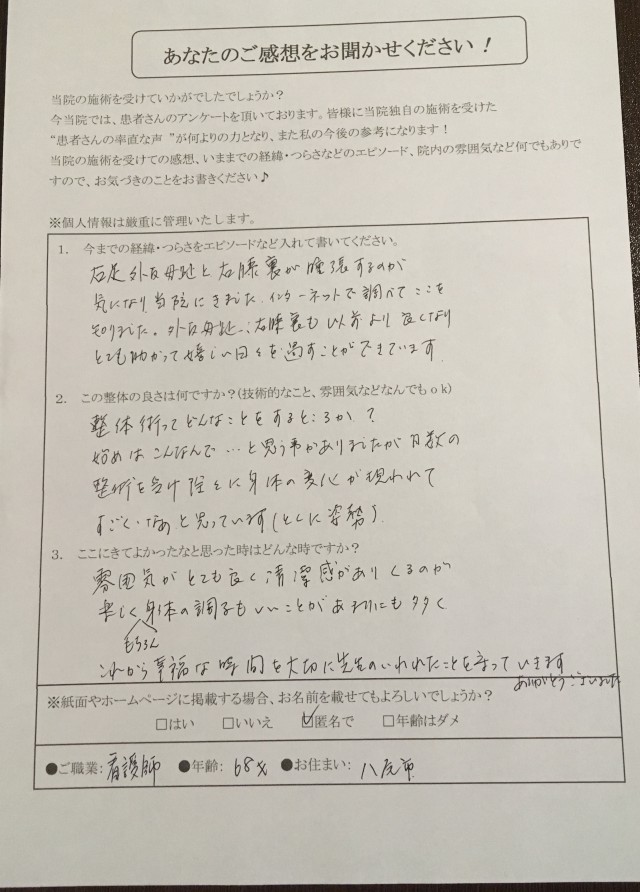 あなたのご感想をお聞かせください！
当院の施術を受けていかがでしたでしょうか？
今当院では、患者さんのアンケートを頂いております。皆様に当院独自の施術を受けた
“患者さんの率直な声 ”が何よりの力となり、また私の今後の参考になります！
当院の施術を受けての感想、いままでの経緯・つらさなどのエピソード、院内の雰囲気など何でもありで
すので、お気づきのことをお書きください♪
※個人情報は厳重に管理いたします。
1. 今までの経緯・つらさをエピソードなど入れて書いてください。
右足外反母趾と右膝裏が腫張するのが
気になり当院にきました。インターネットで調べてここを
知りました。外反母趾、右膝裏も以前より良くなり
とても助かって嬉しい日々を過すことができています
2. この整体の良さは何ですか？(技術的なこと、雰囲気などなんでもｏｋ)
整体術ってどんなことをするところか？
始めはこんなんで…と思う事がありましたが回数の
整術を受け除々に身体の変化が現われて
すごいなあと思っています(とくに姿勢)
3. ここにきてよかったなと思った時はどんな時ですか？
雰囲気がとても良く清潔感がありくるのが
楽しく身体の調子もいいことがあまりにも多く
もちろん
これから幸福な時間を大切に先生のいわれたことを守っていきます
ありがとうございました
※紙面やホームページに掲載する場合、お名前を載せてもよろしいでしょうか？
□はい □いいえ ☑匿名で □年齢はダメ
●ご職業：看護師 ●年齢：68才 ●お住まい：八尾市